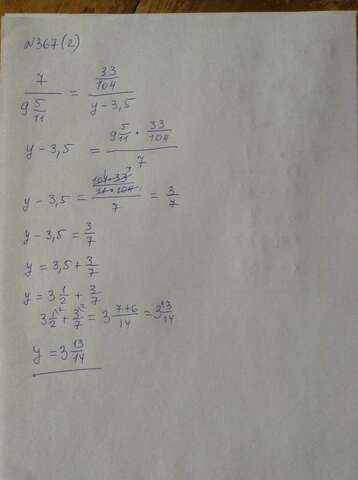 №367(2)
7 / 9 5/11 = 33/104 / y - 3,5
y - 3,5 = 9 5/11 · 33/104 / 7
y - 3,5 = 104·33³/11·104₁ / 7 = 3/7
y - 3,5 = 3/7
y = 3,5 + 3/7
y = 3 1/2 + 3/7
3 1/2 + 3/7² = 3 7+6/14 = 3 13/14
y = 3 13/14